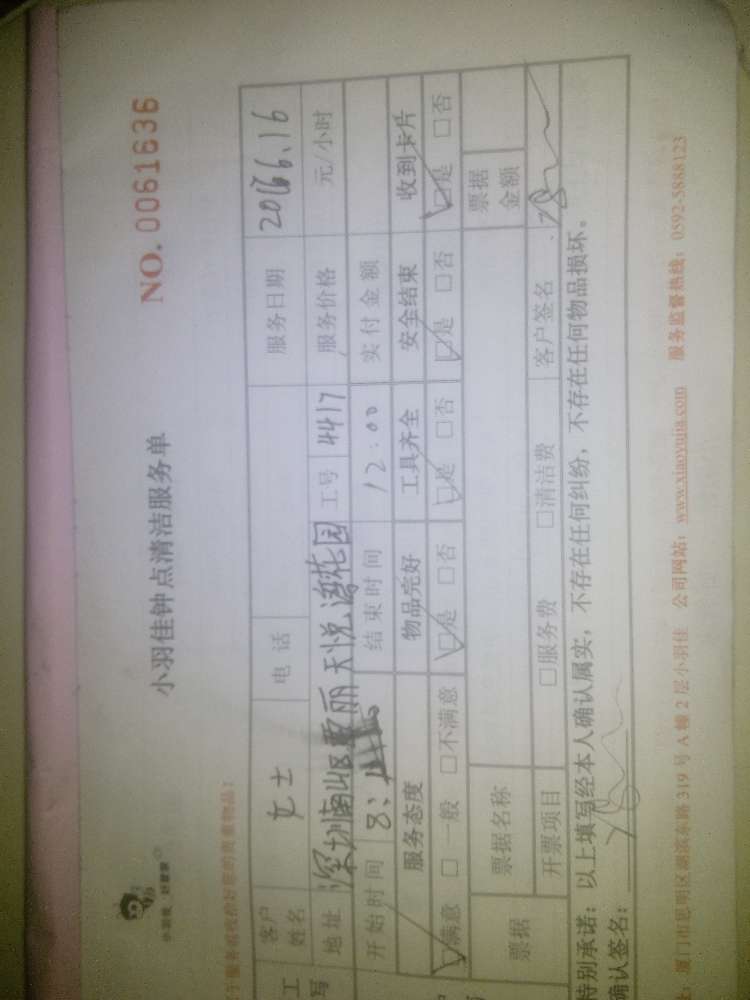 小羽佳钟点清洁服务单
NO. 0061636
客户姓名 女士 电话 服务日期 2016.6.16
地址 深圳南山区 天悦湾花园 工号 4417 服务价格 元/小时
开始时间 8: 结束时间 12:00 实付金额
服务态度 物品完好 工具齐全 安全结束 收到卡片
☑满意 □一般 □不满意 ☑是 □否 ☑是 □否 ☑是 □否 ☑是 □否
票据 票据名称 票据金额
开票项目 □服务费 □清洁费 客户签名
特别承诺：以上填写经本人确认属实，不存在任何纠纷，不存在任何物品损坏。
确认签名：
厦门市思明区湖滨东路 319 号 A 幢 2 层小羽佳 公司网站：www.xiaoyujia.com 服务监督热线：0592-5888123